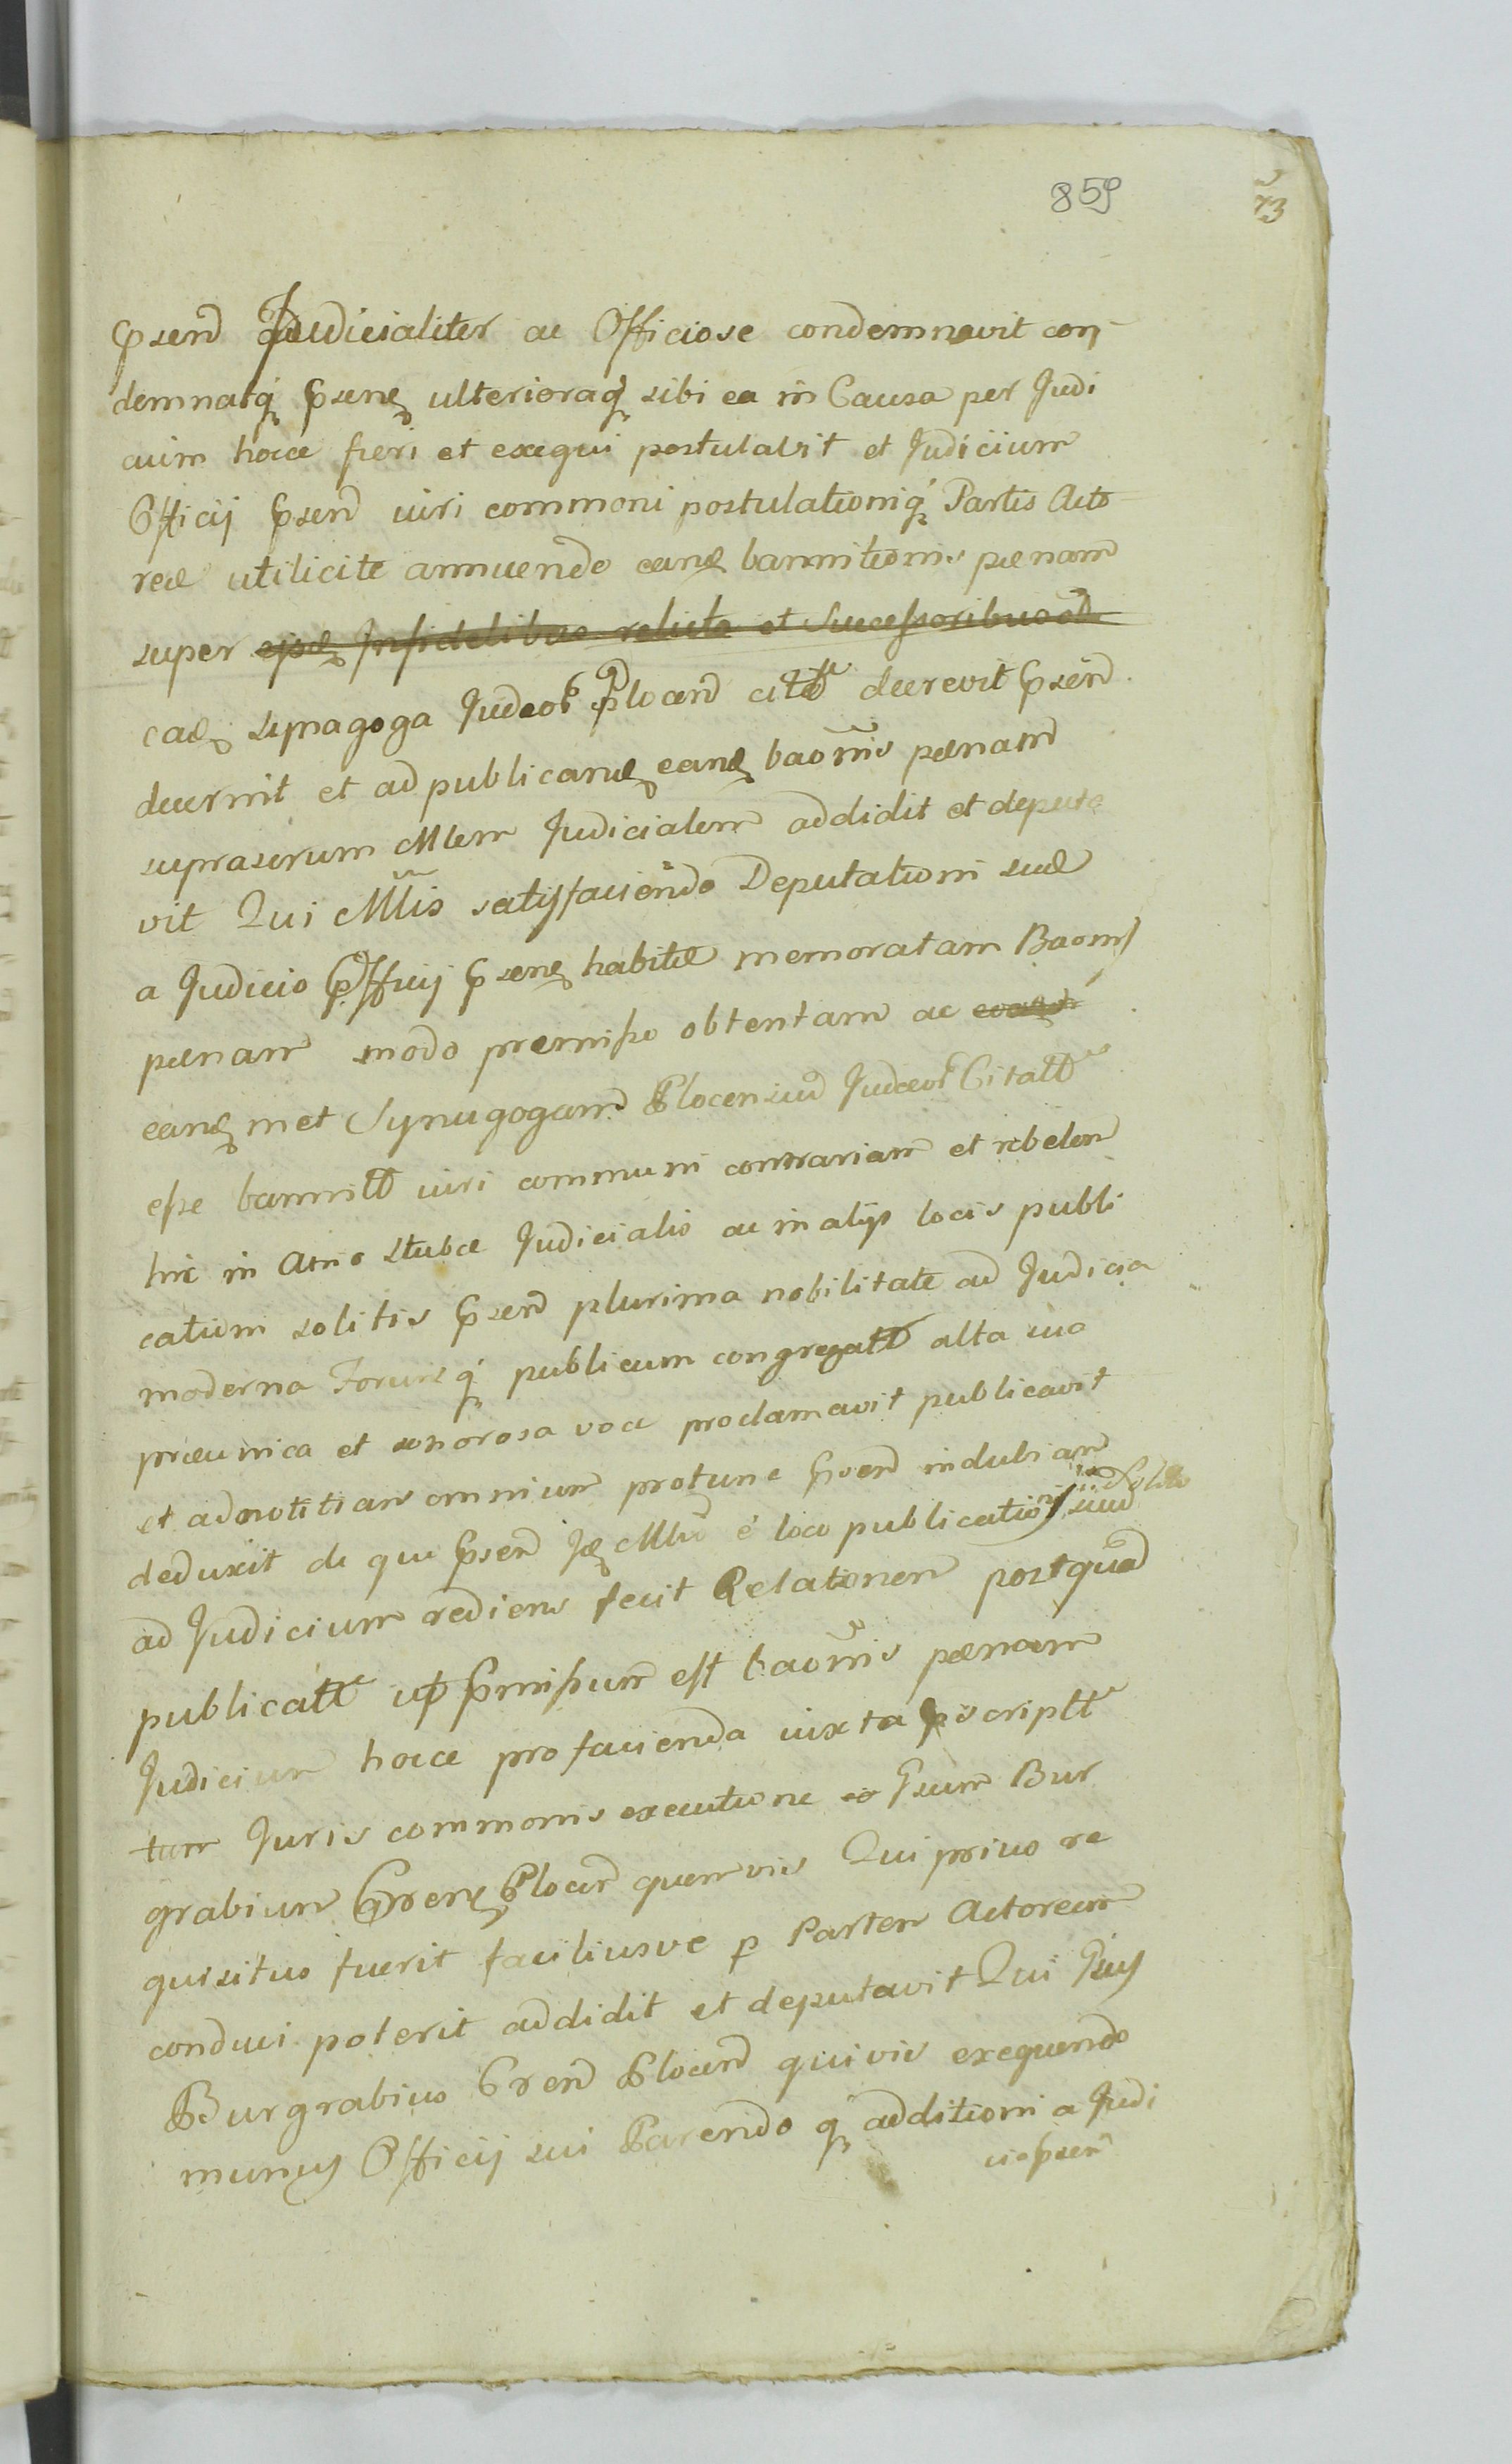 859
73
Psend Judicialiter ac Officiose condemnavit con-
demnatq́ Psens ulterioraq́ sibi ea in Causa per Judi
cium hocce fieri et exequi postulavit et Judicium
Officij Psend iuri commoni postulationiq́ Partis Acto
reæ utilicite annuendo eand bannitionis pænam
super infidelibus relicta et Successoribus
ead synagoga Judeor Plocen citt decrevit Psend
decernit et ad publicand eand baonis pænam
suprascrum Mlem Judicialem addidit et deputa
vit Qui Mlis satisfaciendo Deputationi suæ
a Judicio Officij Psens habitæ memoratam Baonis
pænam modo premisso obtentam ac
eand met Synagogam Plocensium Judæor Citatt
esse bannitt iuri communi contrariam et rebelem
hic in Atrio stubæ Judicialis ac in alijs locis publi
cationi solitis Psend plurima nobilitate ad Judicia
moderna Forumq́ publicum congregatt alta sua
præconica et sonorosa voce proclamavit publicavit
et ad notitiam omnium protunc Psend indubiam
deduxit de quo Psend Id Mlis é loco publicationis
ad Judicium rediens fecit Relationem postquam
publicatt ut Pmissum est baonis pænam
Judicium hocce pro facienda iuxta Pscriptt
tum Juris commonis executione Gsum Bur
grabium Gren Plocen quemvis Qui prius re
quisitus fuerit faciliusve p Partem Actoream
conduci poterit addidit et deputavit Qui Gsus
Burgrabius Gren Plocen quivis exequendo
munus Officij sui Parendo q́ additioni a Judi
cio Psen